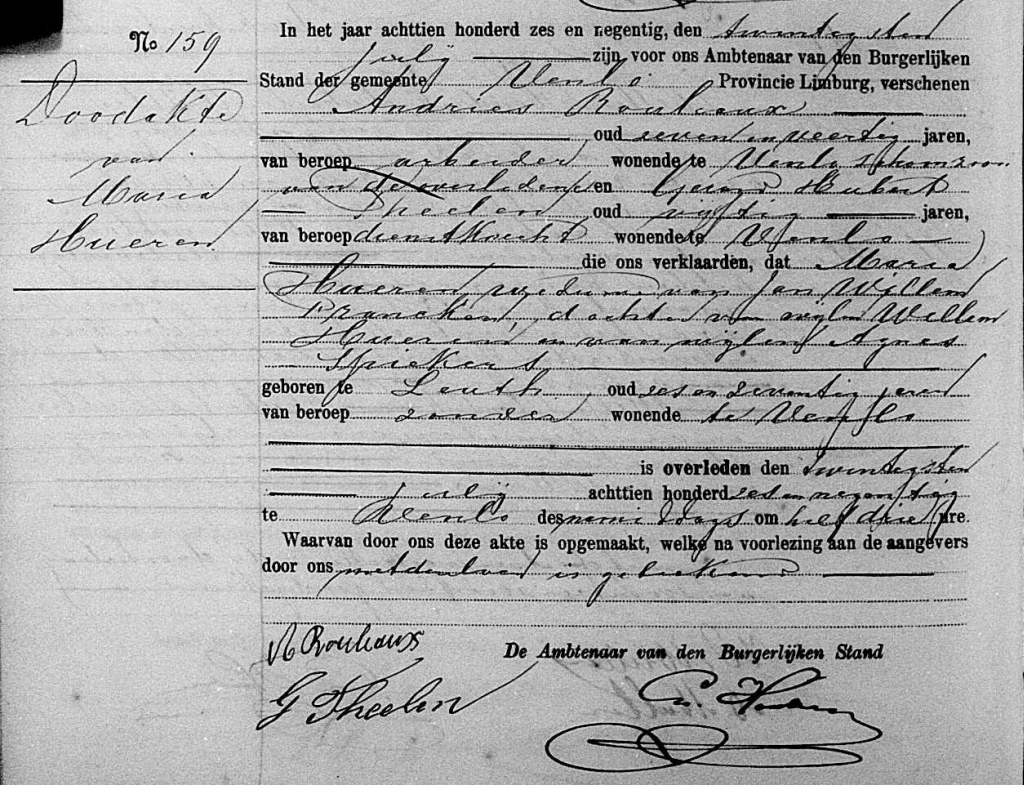 No 159
Doodakte
van
Maria
Hueren
In het jaar achttien honderd zes en negentig, den twintigsten
julij zijn, voor ons Ambtenaar van den Burgerlijken
Stand der gemeente Venlo Provincie Limburg, verschenen
Andries Rouleaux
oud zeven en veertig jaren,
van beroep arbeider wonende te Venlo schoonzoon
van de overledene en Gerard Hubert
Theelen oud vijftig jaren,
van beroep dienstknecht wonende te Venlo
die ons verklaarden, dat Maria
Hueren, weduwe van Jan Willem
Francken, dochter van wijlen Willem
Hueren en van wijlen Agnes
Spickers
geboren te Leuth oud zes en zeventig jaren
van beroep zonder wonende te Venlo
is overleden den twintigsten
julij achttien honderd zes en negentig
te Venlo des nami dags om half drie ure.
Waarvan door ons deze akte is opgemaakt, welke na voorlezing aan de aangevers
door ons met dezelven is geteekend
A Rouleaux
De Ambtenaar van den Burgerlijken Stand
G Theelen